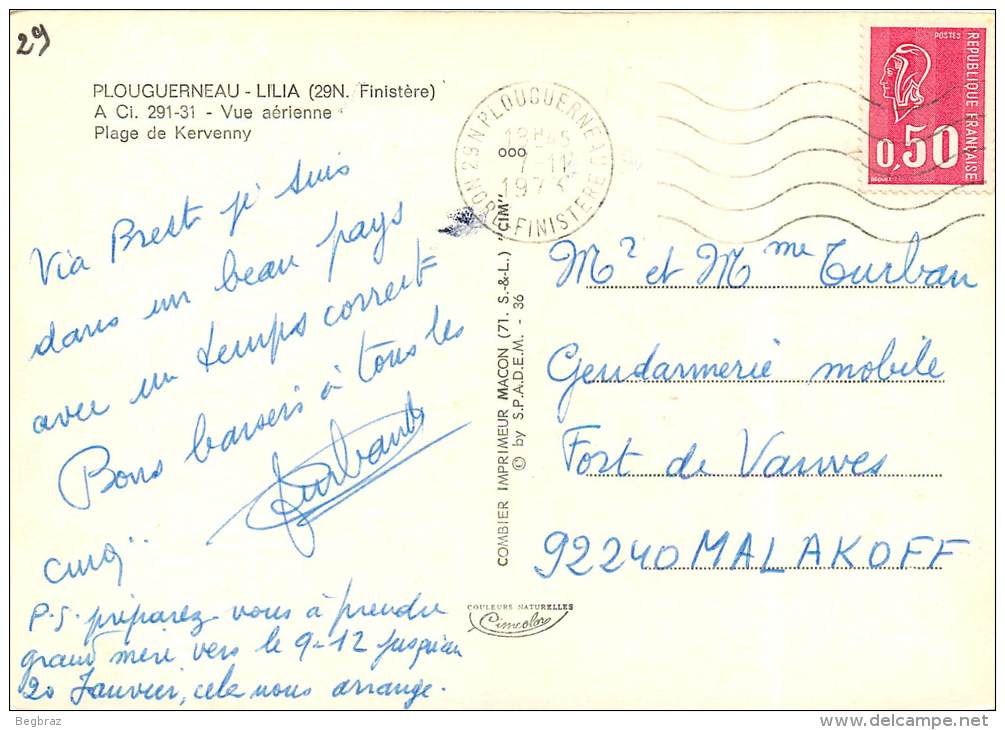 29
PLOUGUERNEAU - LILIA (29N. Finistère)
A Ci. 291-31 - Vue aérienne
Plage de Kervenny
29 N PLOUGUERNEAU
NORD-FINISTERE
18H45
7-11
197
ooo
POSTES
REPUBLIQUE FRANÇAISE
0,50
BEQUET
Via Brest je suis
dans un beau pays
avec un temps correct
Bons baisers à tous les
cinq
P.S. préparez vous à prendre
grand mère vers le 9-12 jusqu'au
20 Janvier, cela nous arrange.
COMBIER IMPRIMEUR MACON (71. S.-&-L.) "CIM"
© by S.P.A.D.E.M. - 36
COULEURS NATURELLES
Cimcolor
Mr et Mme Turban
Gendarmerie mobile
Fort de Vanves
92240 MALAKOFF
Begbraz
www.delcampe.net